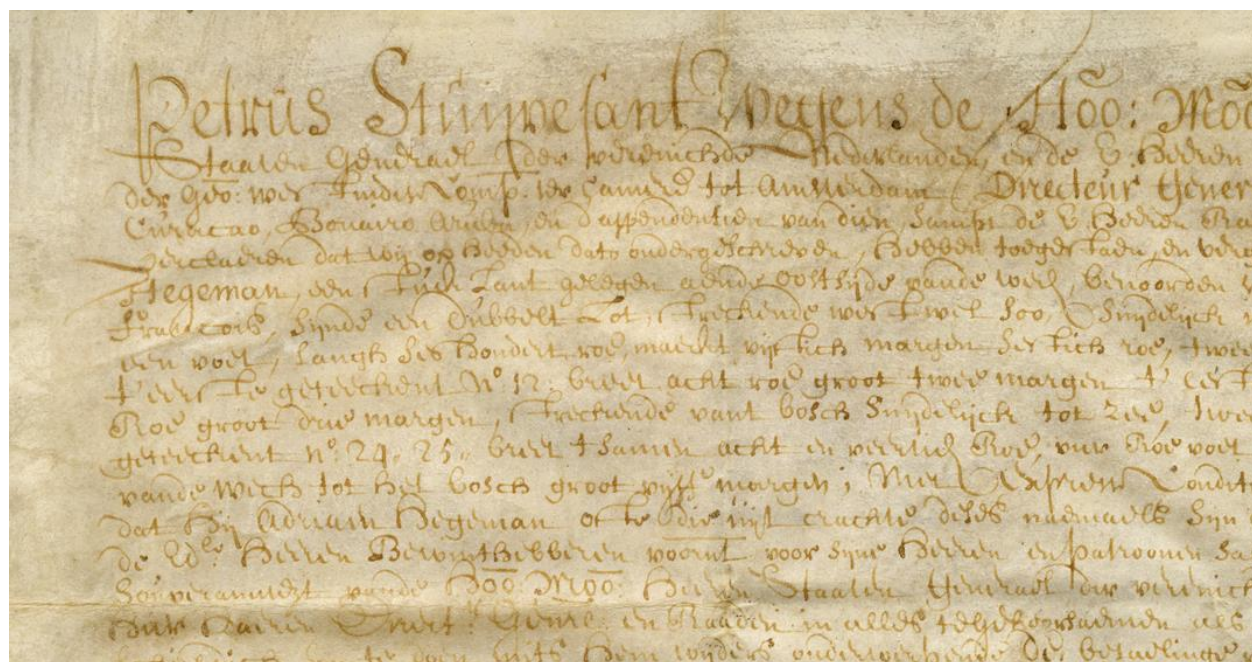 Petrus Stuijvesant Wegens de Hoo: Moo
Staaten Generael der vereenichde Nederlanden, en de E. Heeren
der Geo: West Indise Comp. ter Camere tot Amsterdam Directeur Gener
Curacao, Bonairo, Aruba, en d'appendentien van dien, Sampt de E. Heeren Ra
Verclaeren dat wij op Heeden dato ondergeschreven, Hebben toegestaen, en ver
Hegeman, een Stuck Lant gelegen aende Oostsijde vande wech, benoorden
Francois, sijnde een Dubbelt Lot, streckende west wel soo, Suijdelijck
een voet, Langh ses hondert roe, maeckt vijftich margen sestich roe, twee
t' eerste geteeckent No 12: breet acht roe groot twee margen t'
Roe groot drie margen, streckende vant bosch Suijdelijck tot Zee, twe
geteeckent no: 24. 25. breet t'samen acht en veertich Roe, vier Roe voet
vande Wech tot het bosch groot vijff margen; Met Expresse Condit
dat hij Adriaen Hegeman ofte die uijt crachte deses naemaels sijn
de Ed:le Heeren Bewinthebberen voornt voor sijne Heeren en patroonen sa
Souverainiteijt vande Hoo: Moo: Heeren Staaten Generael der vereenich
Haer Direct: Genrl: en Raaden in alles te gehoorsaemen als
te doen, mits hem wijders onderwerpende de betaelinge